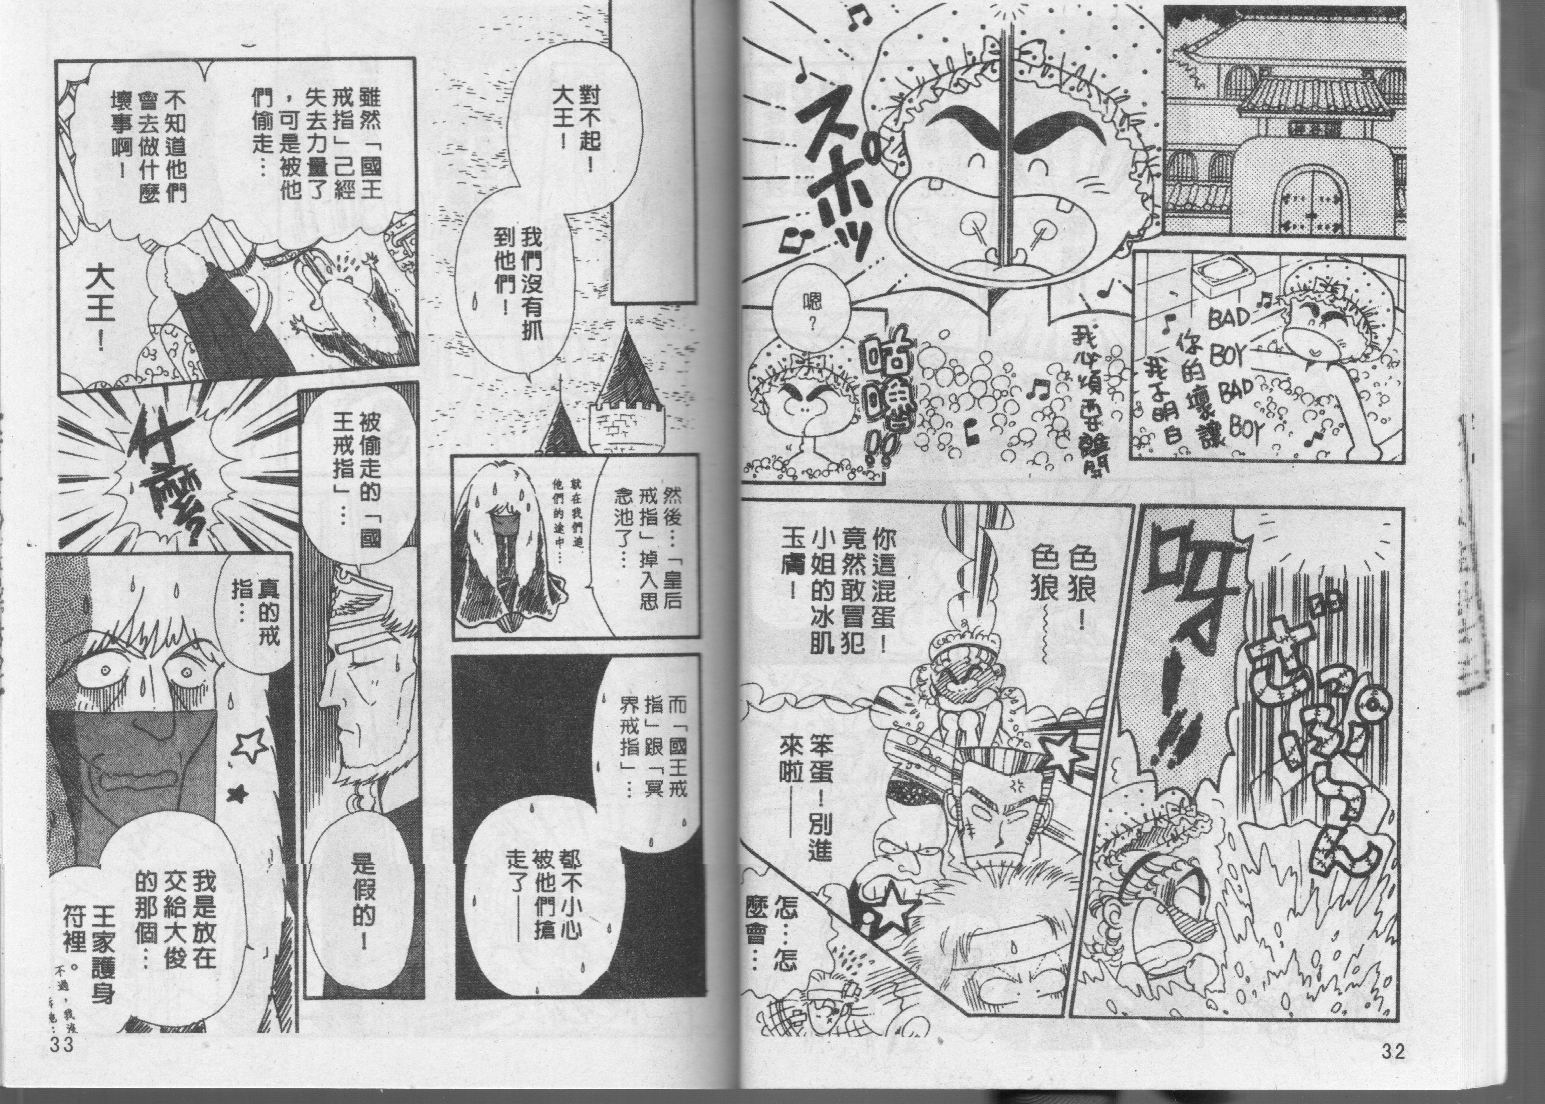 BAD
BOY
BAD
BOY
你的壞讓
我不明白
スポッ
我心煩要離開
嗯?
咕嚕!!
ざっぱーん
呀——!!
色狼!
色狼~
你這混蛋!
竟然敢冒犯
小姐的冰肌
玉膚!
笨蛋!別進
來啦——
怎…怎
麼會…
32
對不起!
大王!
我們沒有抓
到他們!
雖然「國王
戒指」已經
失去力量了
,可是被他
們偷走…
不知道他們
會去做什麼
壞事啊!
大王!
就在我們追
他們的途中…
然後…「皇后
戒指」掉入思
念池了…
而「國王戒
指」跟「冥
界戒指」…
都不小心
被他們搶
走了——
被偷走的「國
王戒指」…
是假的!
什麼
真的戒
指…
我是放在
交給大俊
的那個…
王家護身
符裡。
不過,我沒
33